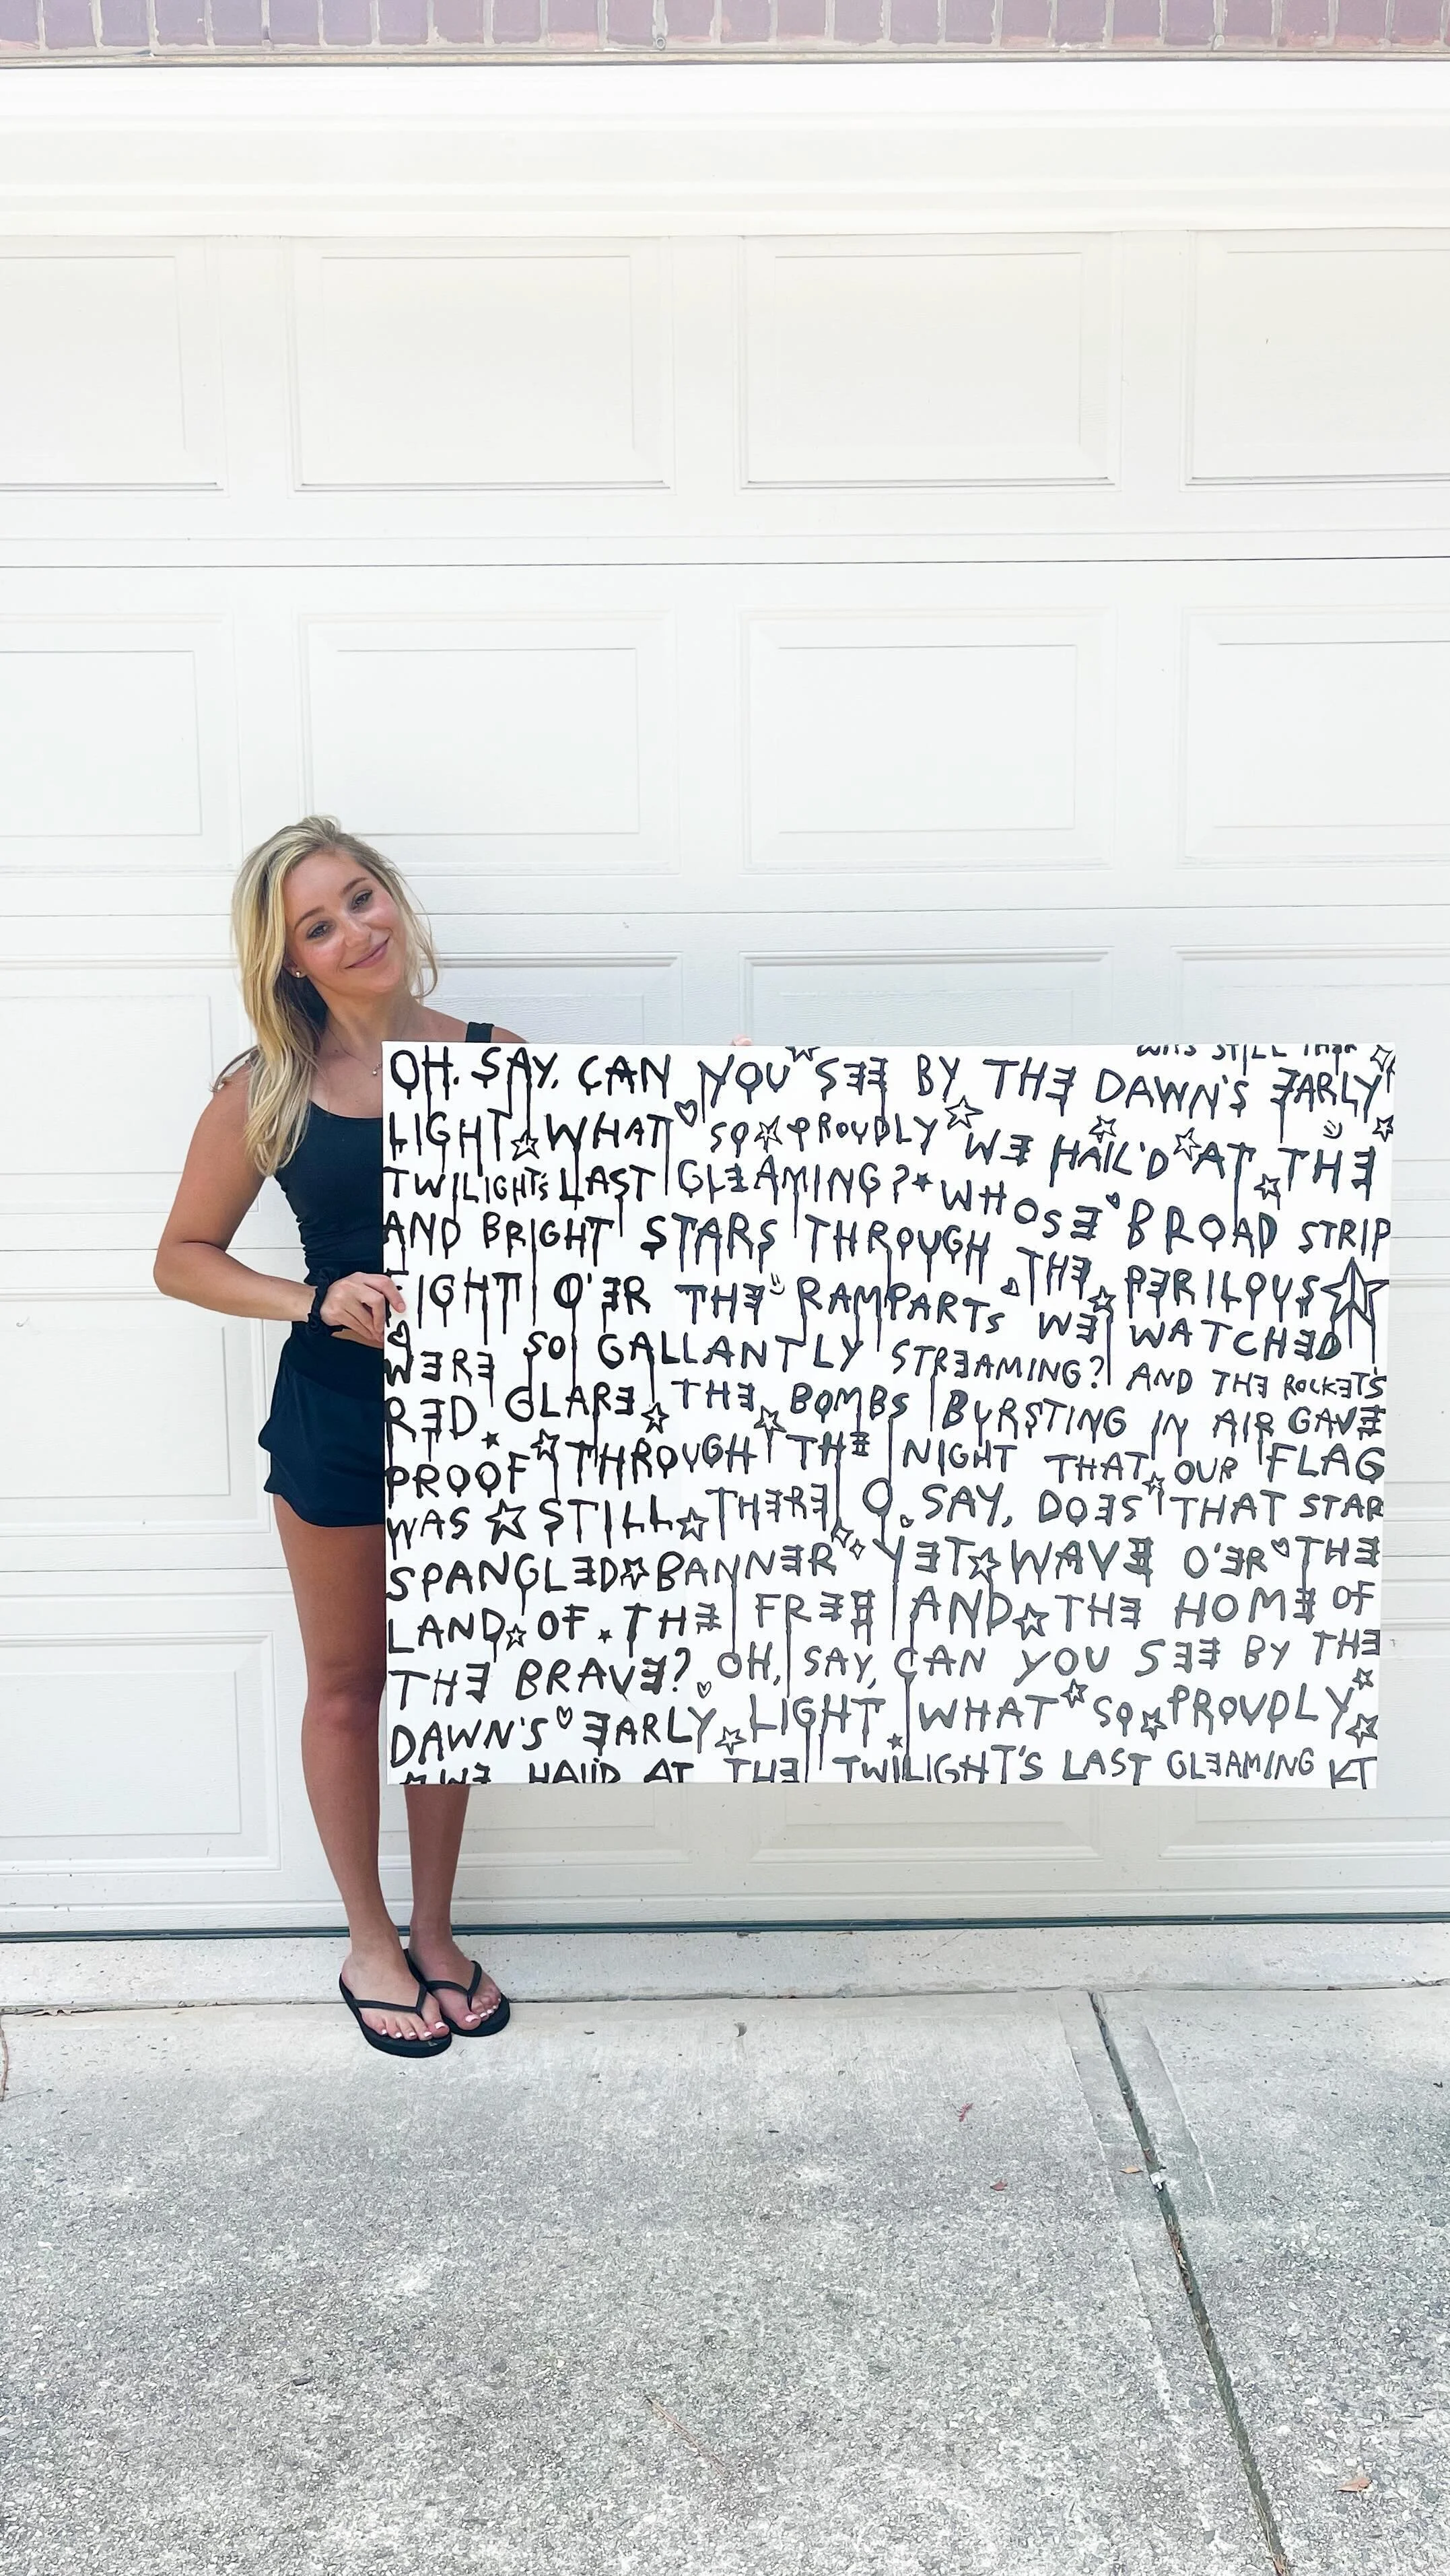 WAS STILL THER
OH, SAY, CAN YOU SEE BY THE DAWN'S EARLY
LIGHT WHAT SO PROUDLY WE HAIL'D AT THE
TWILIGHT'S LAST GLEAMING? WHOSE BROAD STRIP
AND BRIGHT STARS THROUGH THE PERILOUS
FIGHT O'ER THE RAMPARTS WE WATCHED
WERE SO GALLANTLY STREAMING? AND THE ROCKET'S
RED GLARE THE BOMBS BURSTING IN AIR GAVE
PROOF THROUGH THE NIGHT THAT OUR FLAG
WAS STILL THERE O SAY, DOES THAT STAR
SPANGLED BANNER YET WAVE O'ER THE
LAND OF THE FREE AND THE HOME OF
THE BRAVE? OH, SAY, CAN YOU SEE BY THE
DAWN'S EARLY LIGHT WHAT SO PROUDLY
WE HAIL'D AT THE TWILIGHT'S LAST GLEAMING KT